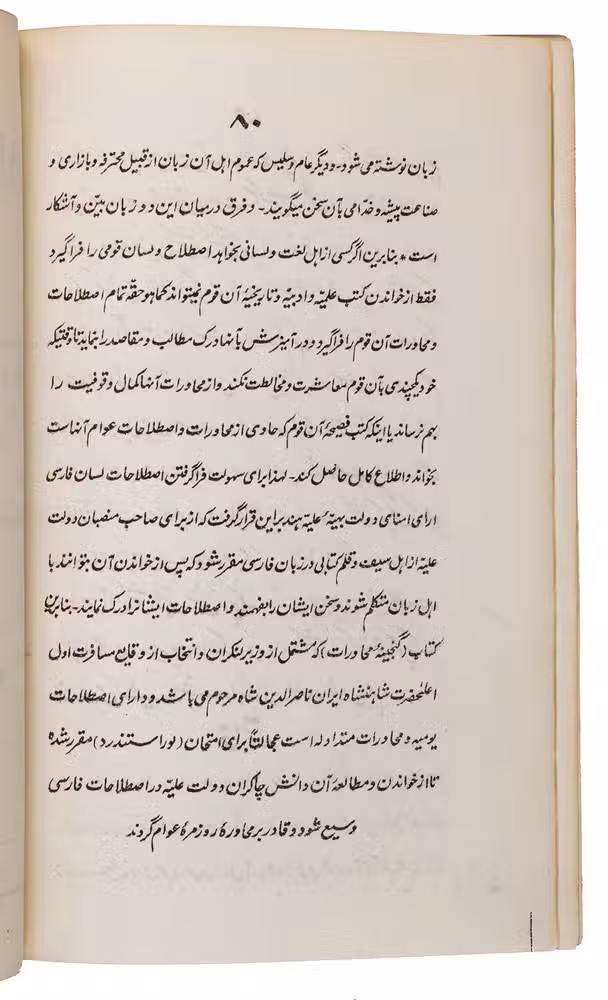 ۸۰
زبان نوشته می شود- و دیگر عام و سلیس که عموم اهل آن زبان از قبیل محترفه و بازاری و
صناعت پیشه و خدّامی بآن سخن میگویند- و فرق درمیان این دو زبان بیّن و آشکار
است * بنابرین اگر کسی از اهل لغت و لسانی بخواهد اصطلاح و لسان قومی را فراگیرد
فقط از خواندن کتب علمیّه و ادبیّه و تاریخیّهٔ آن قوم نمیتواند کماهوحقّه تمام اصطلاحات
و محاورات آن قوم را فراگیرد و در آمیزمش بآنها درک مطالب و مقاصد را بنماید تا وقتیکه
خود یکچندی بآن قوم معاشرت و مخالطت نکند و از محاورات آنها کمال وقوفیت را
بهم نرساند یا اینکه کتب فصیحهٔ آن قوم که حاوی از محاورات و اصطلاحات عوام آنهاست
بخواند و اطلاع کامل حاصل کند- لهذا برای سهولت فراگرفتن اصطلاحات لسان فارسی
ارای امنای دولت بهیّهٔ علیّه هند براین قرار گرفت که از برای صاحب منصبان دولت
علیّه از اهل سیف و قلم کتابی در زبان فارسی مقرر شود که پس از خواندن آن بتوانند با
اهل زبان متکلم شوند و سخن ایشان را بفهمند و اصطلاحات ایشانرا درک نمایند- بنابرین
کتاب (گنجینهٔ محاورات) که مشتمل از وزیر لنکران و انتخاب از وقایع مسافرت اول
اعلٰحضرت شاهنشاه ایران ناصرالدین شاه مرحوم می باشد و دارای اصطلاحات
یومیه و محاورات متداوله است عجالتاً برای امتحان (لور استندرد) مقرر شده
تا از خواندن و مطالعهٔ آن دانش چاکران دولت علیّه در اصطلاحات فارسی
وسیع شود و قادر بر محاورهٔ روزمرهٔ عوام گردند